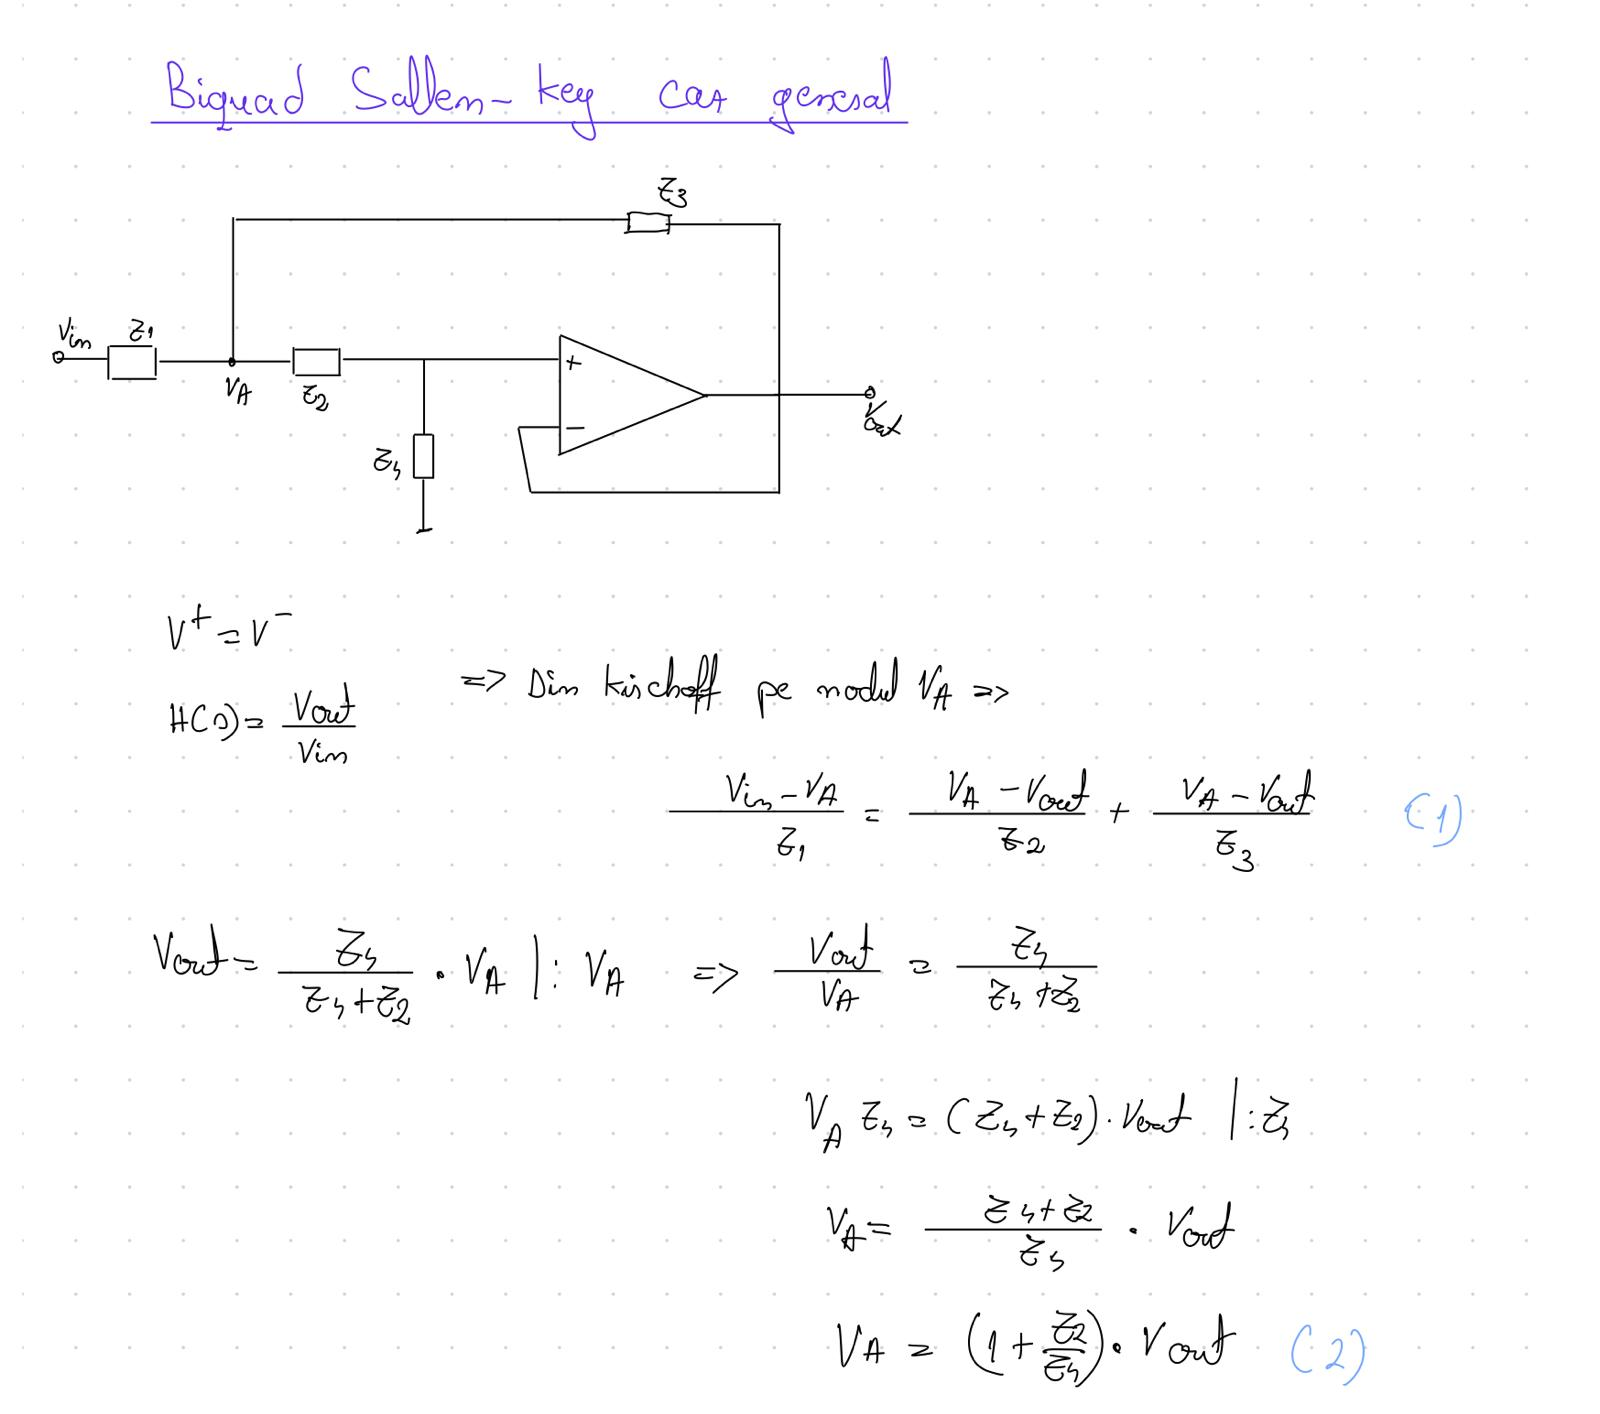 Biquad Sallen-key caz general
Z3
Vin Z1
VA Z2
+
-
Z4
Vout
V+ = V-
=> Din kirchoff pe nodul VA =>
H(s) = Vout / Vin
(Vin - VA) / Z1 = (VA - Vout) / Z2 + (VA - Vout) / Z3 (1)
Vout = Z4 / (Z4 + Z2) · VA |: VA => Vout / VA = Z4 / (Z4 + Z2)
VA Z4 = (Z4 + Z2) · Vout |: Z4
VA = (Z4 + Z2) / Z4 · Vout
VA = (1 + Z2 / Z4) · Vout (2)